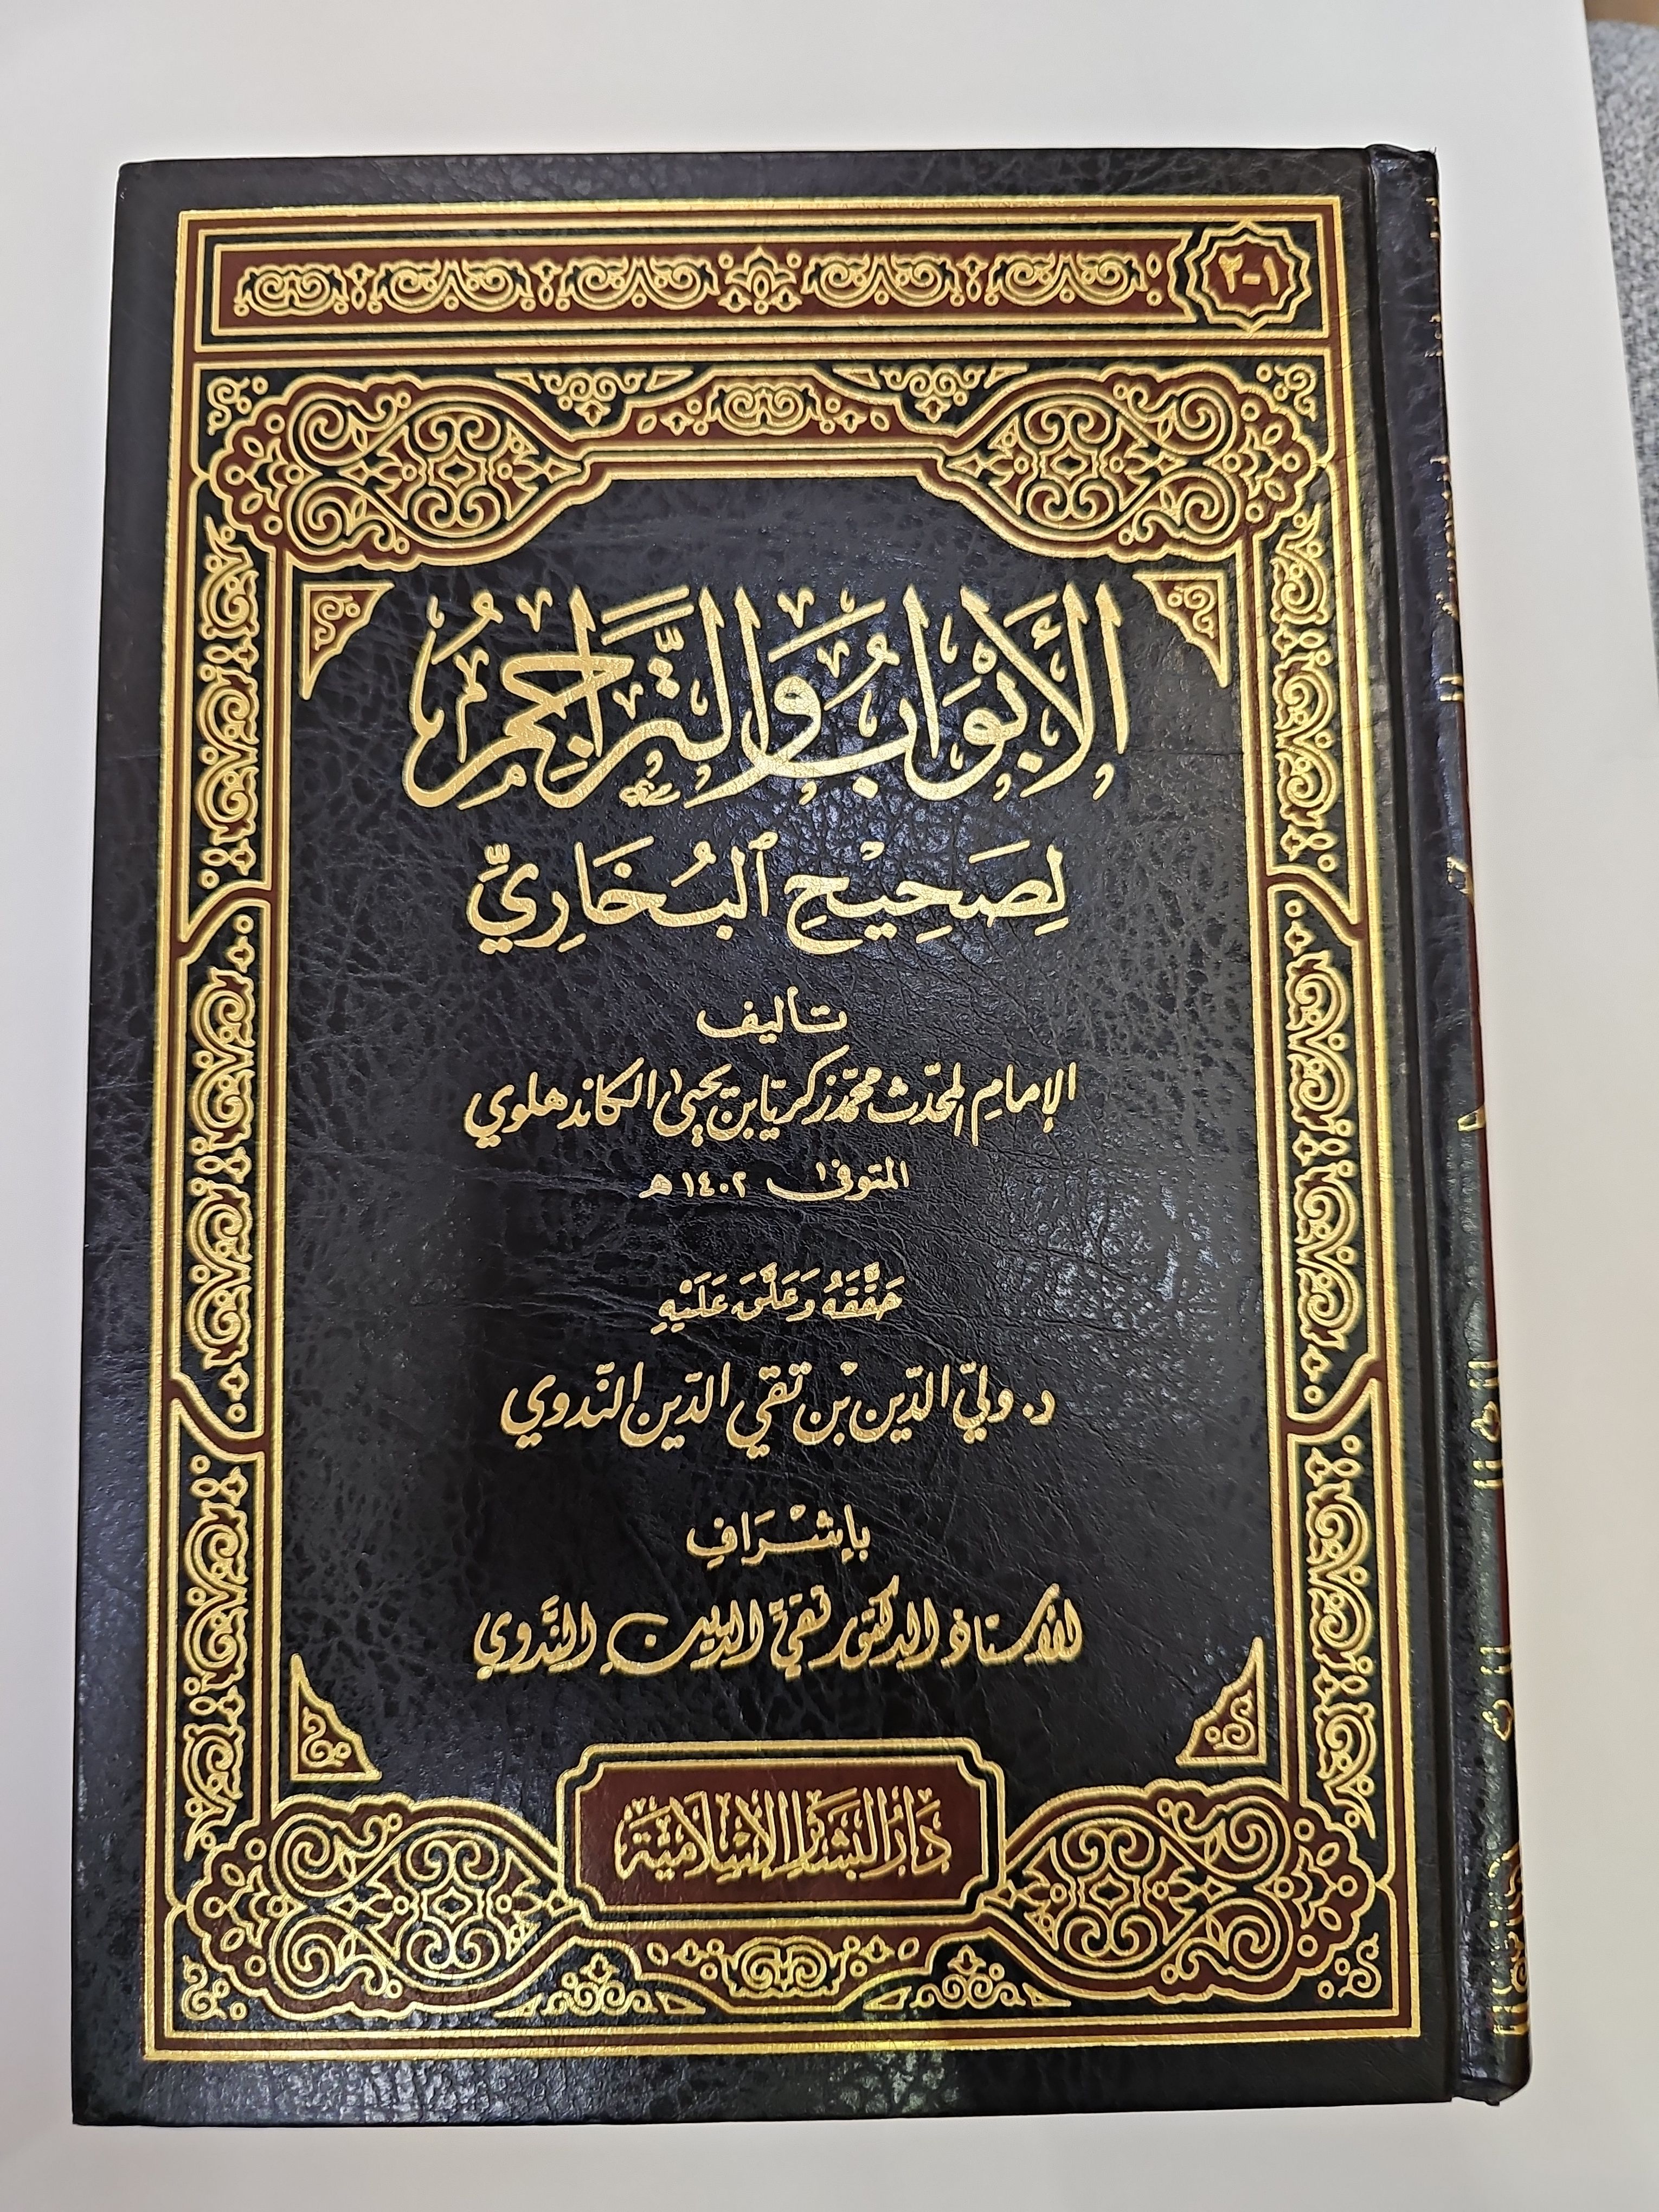 ١-٢
الأَبْوَابُ وَالتَّرَاجِمُ
لِصَحِيْحِ ٱلبُخَارِيِّ
تأليف
الإمام المحدّث محمّد زكريّا بن يحيىٰ الكاندهلوي
المتوفىٰ ١٤٠٢ هـ
حَقَّقَهُ وَعَلَّقَ عَلَيْهِ
د. وليّ الدّين بن تقي الدّين النّدوي
بإشْرَافِ
الأستاذ الدكتور تقيّ الدين النَّدوي
دَارُ البَشَائِرِ الإِسْلَامِيَّة